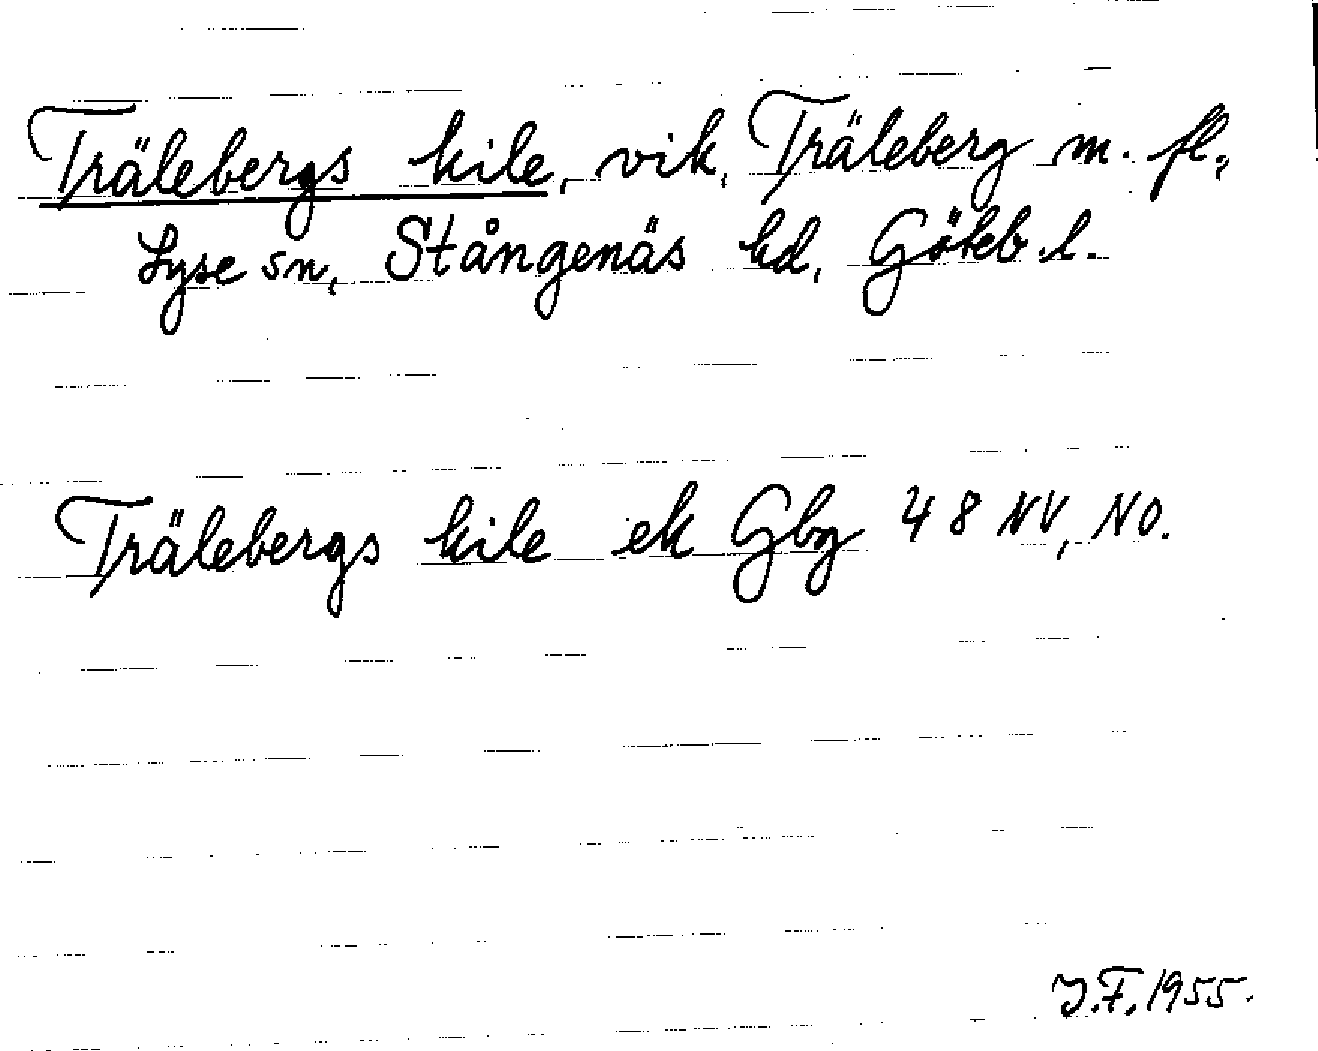 Trälebergs kile, vik, Träleberg m. fl.,
Lyse sn, Stångenäs hd, Göteb. l.
Trälebergs kile ek Gbg 48 NV, NO.
J.F. 1955.